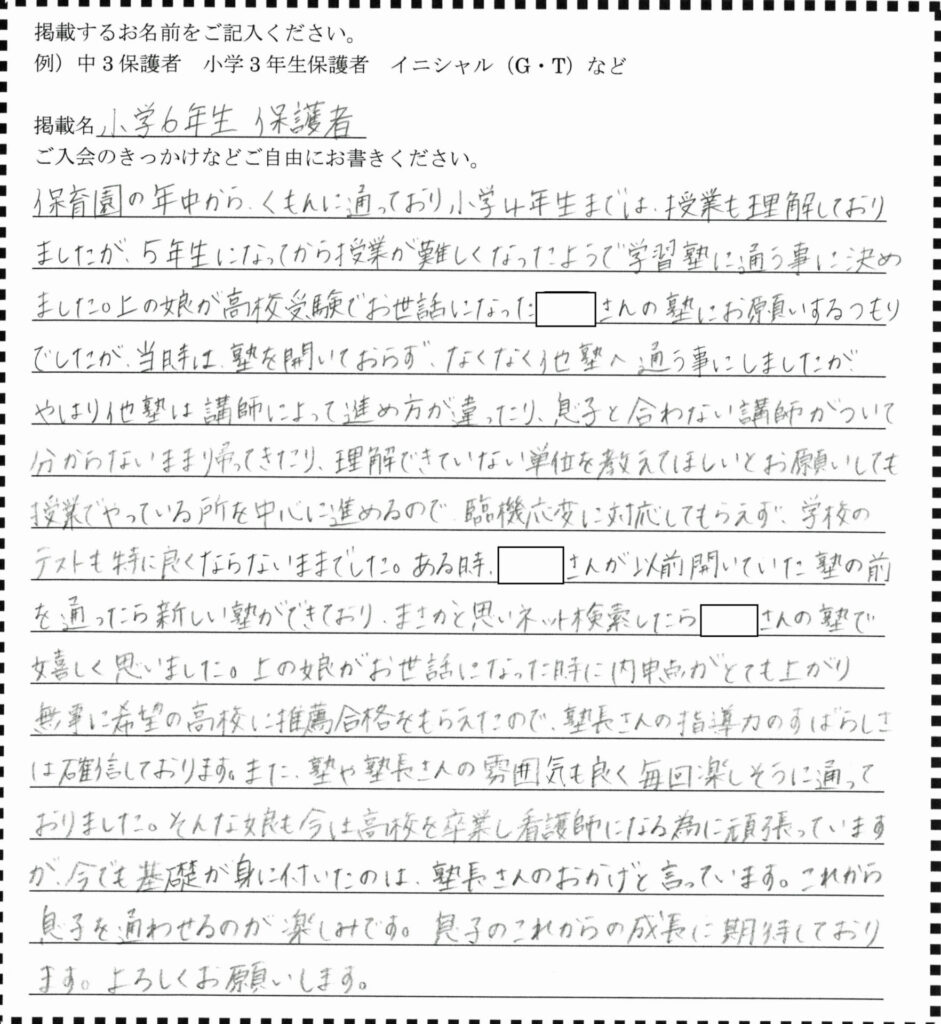 掲載するお名前をご記入ください。
例）中３保護者　小学３年生保護者　イニシャル（G・T）など
掲載名 小学6年生 保護者
ご入会のきっかけなどご自由にお書きください。
保育園の年中から、くもんに通っており小学4年生までは、授業も理解しており
ましたが、5年生になってから授業が難しくなったようで学習塾に通う事に決め
ました。上の娘が高校受験でお世話になった さんの塾にお願いするつもり
でしたが、当時は、塾を開いておらず、なくなく他塾へ通う事にしましたが
やはり他塾は講師によって進め方が違ったり、息子と合わない講師がついて
分からないまま帰ってきたり、理解できていない単位を教えてほしいとお願いしても
授業でやっている所を中心に進めるので、臨機応変に対応してもらえず、学校の
テストも特に良くならないままでした。ある時、 さんが以前開いていた塾の前
を通ったら新しい塾ができており、まさかと思いネット検索したら さんの塾で
嬉しく思いました。上の娘がお世話になった時に内申点がとても上がり
無事に希望の高校に推薦合格をもらえたので、塾長さんの指導力のすばらしさ
は確信しております。また、塾や塾長さんの雰囲気も良く毎回楽しそうに通って
おりました。そんな娘も今は高校を卒業し看護師になる為に頑張っています
が、今でも基礎が身に付いたのは、塾長さんのおかげと言っています。これから
息子を通わせるのが楽しみです。息子のこれからの成長に期待しており
ます。よろしくお願いします。